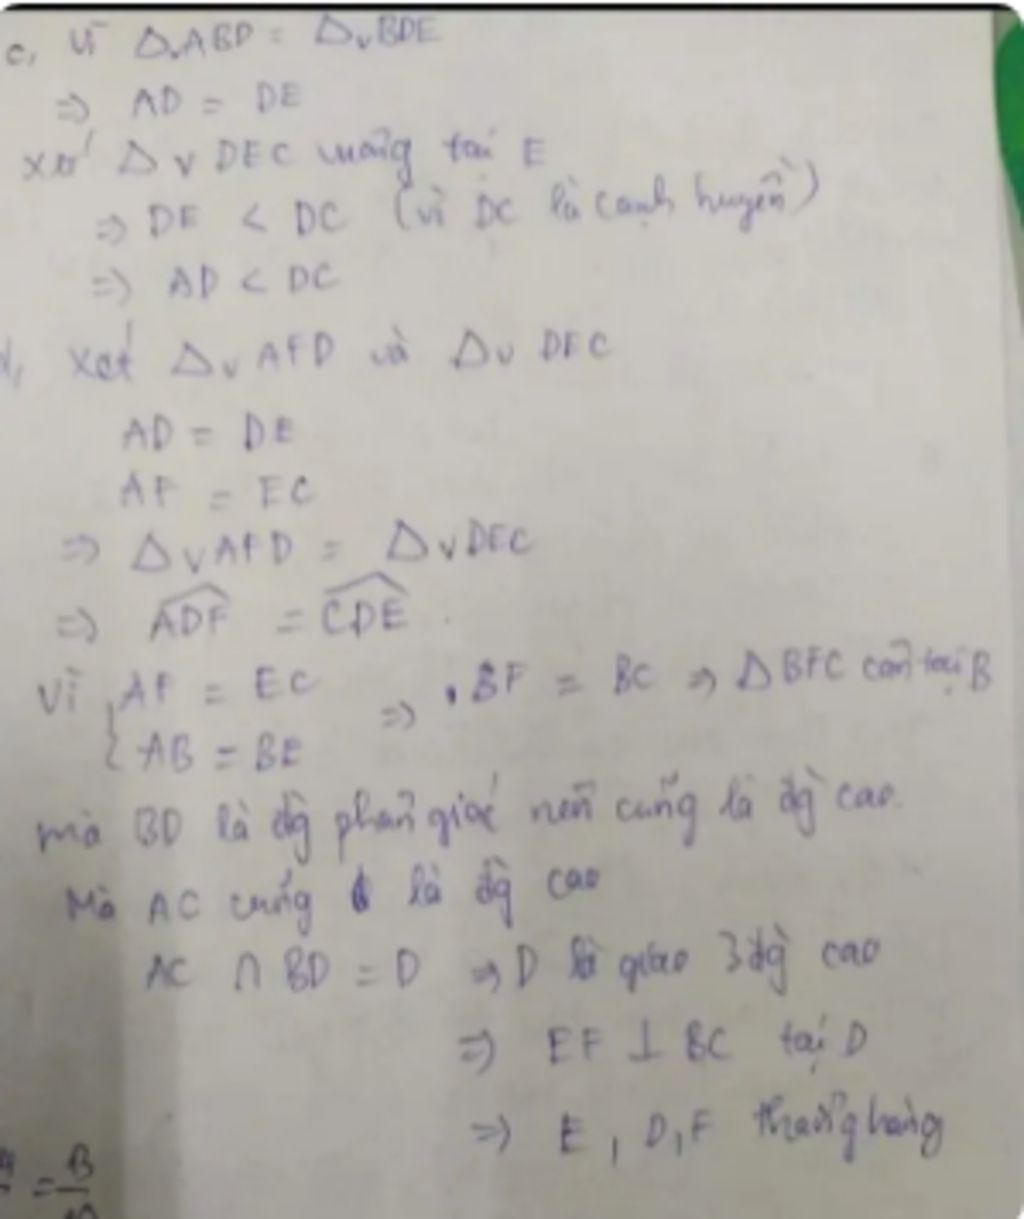 c, Vì ΔvABD = ΔvBDE
=> AD = DE
xét Δv DEC vuông tại E
=> DE < DC (vì DC là cạnh huyền)
=> AD < DC
d, xét Δv AFD và Δv DEC
AD = DE
AF = EC
=> ΔvAFD = ΔvDEC
=> \widehat{ADF} = \widehat{CDE}.
Vì { AF = EC => BF = BC => ΔBFC cân tại B
AB = BE
mà BD là đg phân giác nên cũng là đg cao.
Mà AC cũng là đg cao
AC ∩ BD = D => D là giao 3 đg cao
=> EF ⊥ BC tại D
=> E, D, F thẳng hàng
= B